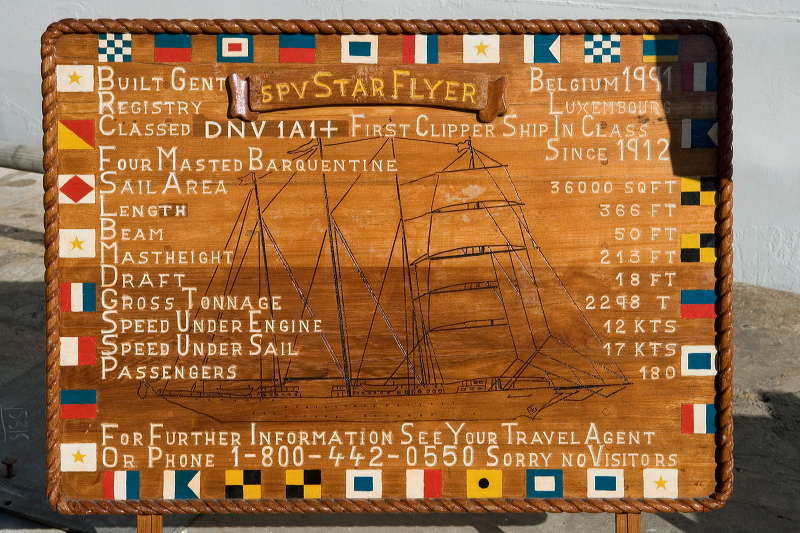 SPV STAR FLYER
BUILT GENT BELGIUM 1991
REGISTRY LUXEMBOURG
CLASSED DNV 1A1+ FIRST CLIPPER SHIP IN CLASS
SINCE 1912
FOUR MASTED BARQUENTINE
SAIL AREA 36000 SQFT
LENGTH 366 FT
BEAM 50 FT
MASTHEIGHT 213 FT
DRAFT 18 FT
GROSS TONNAGE 2298 T
SPEED UNDER ENGINE 12 KTS
SPEED UNDER SAIL 17 KTS
PASSENGERS 180
FOR FURTHER INFORMATION SEE YOUR TRAVEL AGENT
OR PHONE 1-800-442-0550 SORRY NO VISITORS